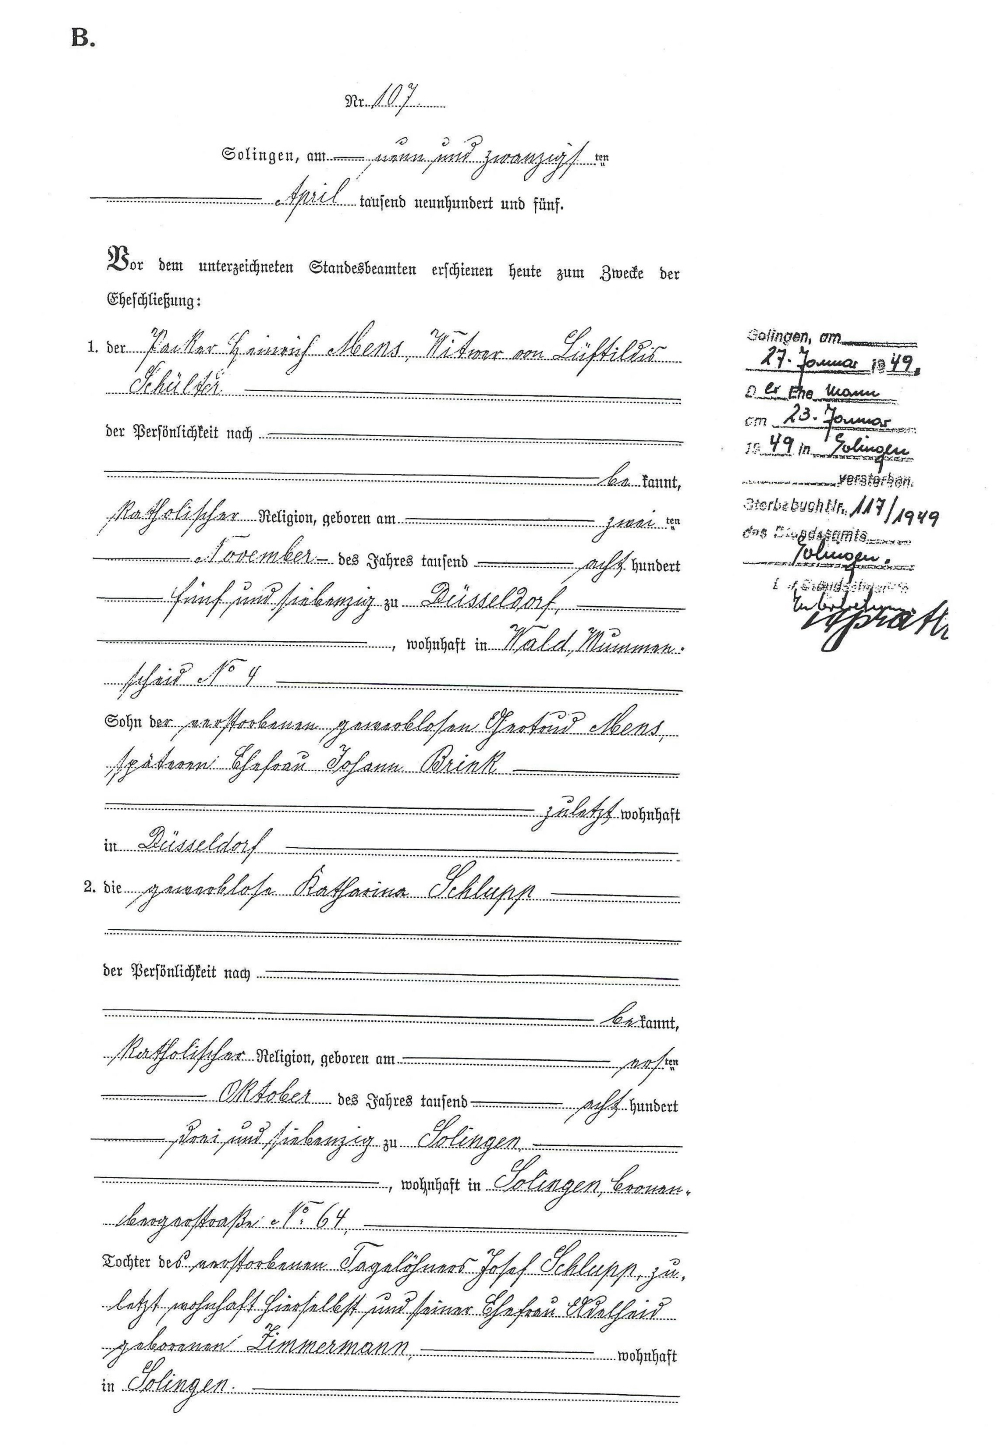 B.
Nr. 107.
Solingen, am neun und zwanzigsten
April tausend neunhundert und fünf.
Vor dem unterzeichneten Standesbeamten erschienen heute zum Zwecke der
Eheschließung:
1. der Packer Heinrich Mens, Witwer von Lüftildis
Schülter
der Persönlichkeit nach
bekannt,
katholischer Religion, geboren am zweiten
November des Jahres tausend acht hundert
fünf und siebenzig zu Düsseldorf,
, wohnhaft in Wald, Mummen-
scheid No 4
Sohn der verstorbenen gewerblosen Gertrud Mens,
späteren Ehefrau Johann Brink
zuletzt wohnhaft
in Düsseldorf
2. die gewerblose Katharina Schlupp
der Persönlichkeit nach
bekannt,
katholischer Religion, geboren am ersten
Oktober des Jahres tausend acht hundert
drei und siebenzig zu Solingen,
, wohnhaft in Solingen, Cronen-
bergerstraße No. 64,
Tochter des verstorbenen Tagelöhners Josef Schlupp, zu-
letzt wohnhaft hierselbst und seiner Ehefrau Adelheid
geborenen Zimmermann, wohnhaft
in Solingen.
Solingen, am
27. Januar 1949.
Der Ehemann
am 23. Januar
1949 in Solingen
verstorben.
Sterbebuch Nr. 117/1949
des Standesamts
Solingen.